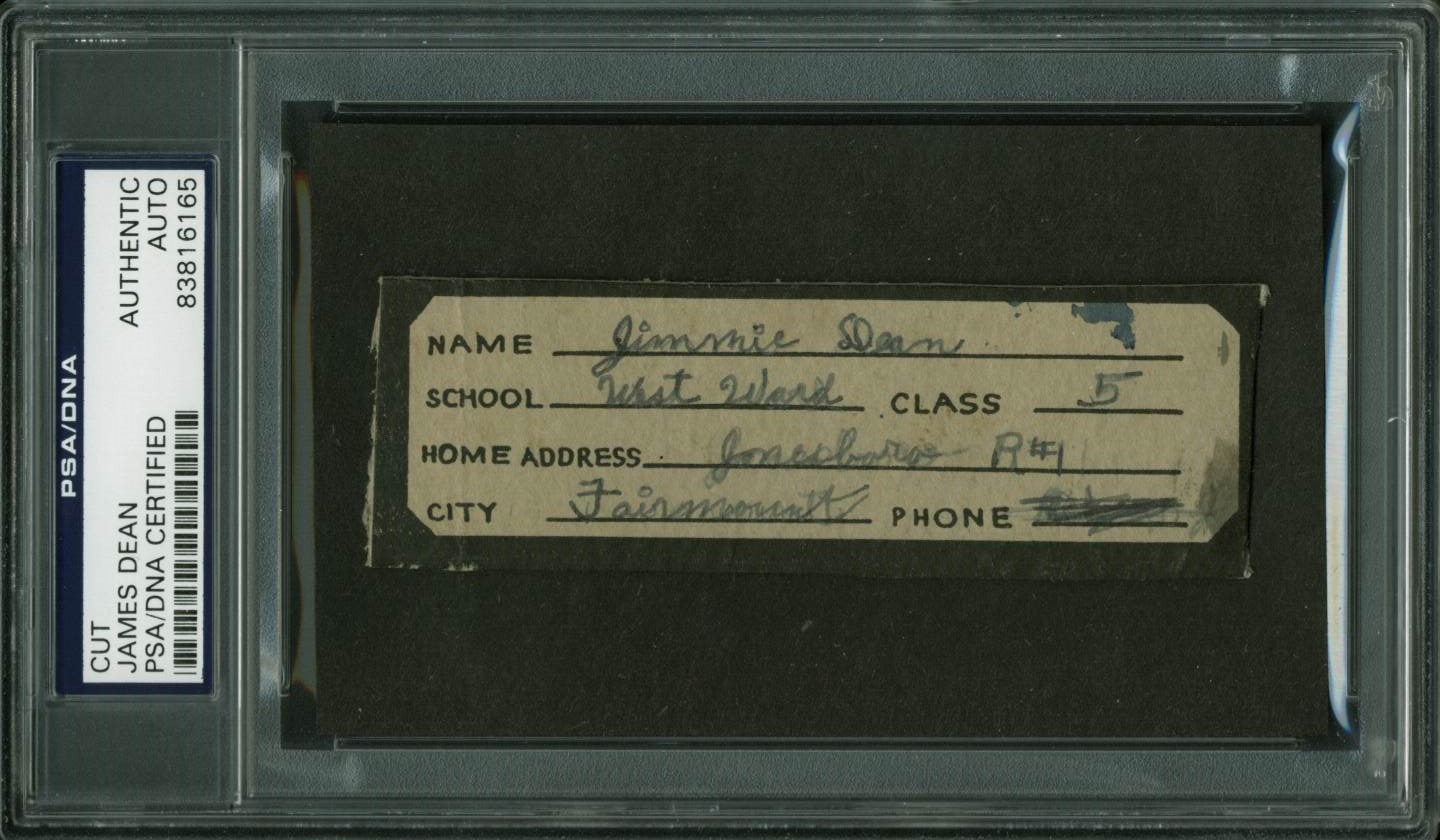 PSA/DNA
CUT
JAMES DEAN AUTHENTIC
PSA/DNA CERTIFIED AUTO
83816165
NAME Jimmie Dean
SCHOOL West Ward CLASS 5
HOME ADDRESS Jonesboro R#1
CITY Fairmount PHONE